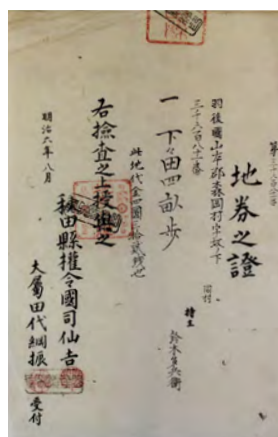 地券之證
羽後國山本郡森岡村字坂下
三千六百八十二番
同村
一 下々田四畝歩 持主
鈴木
此地代金四圓 拾貳銭也
右撿査之上授與之
明治六年八月
秋田縣權令國司仙吉
大屬田代綱振 受付